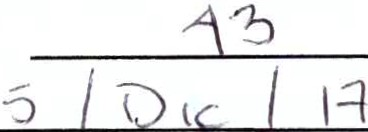 43
5 / Dic / 17